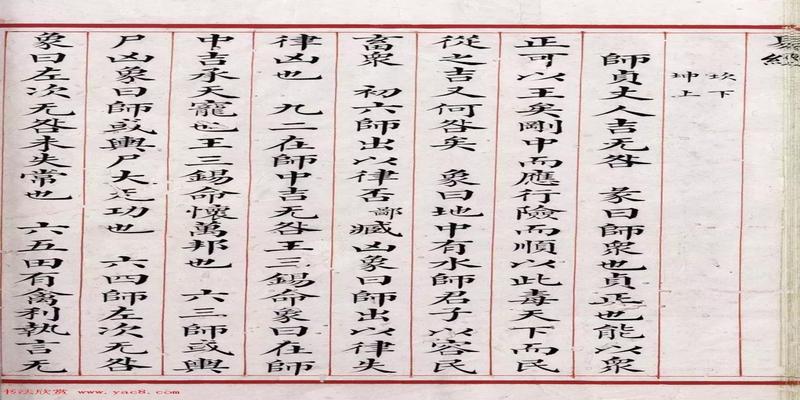 易經
坎下
坤上
師貞丈人吉无咎 彖曰師衆也貞正也能以衆
正可以王矣剛中而應行險而順以此毒天下而民
從之吉又何咎矣 象曰地中有水師君子以容民
畜衆 初六師出以律否鄙臧凶象曰師出以律失
律凶也 九二在師中吉无咎王三錫命象曰在師
中吉承天寵也王三錫命懷萬邦也 六三師或輿
尸凶象曰師或輿尸大无功也 六四師左次无咎
象曰左次无咎未失常也 六五田有禽利執言无
书法欣赏 www.yac8.com